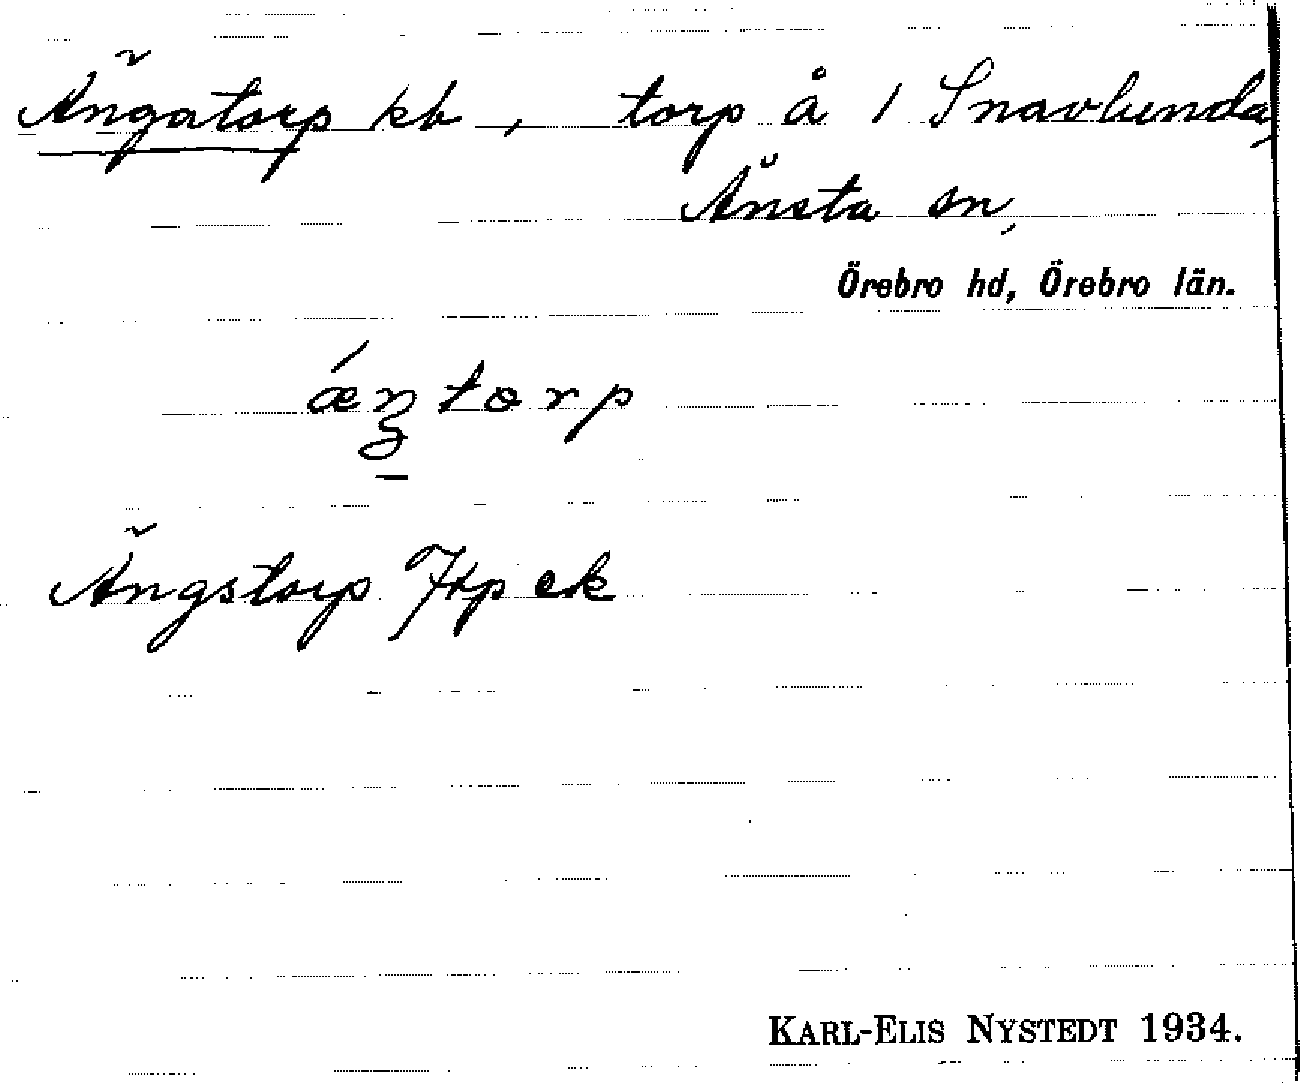 Ängatorp kb, torp å 1 Snavlunda,
Änsta sn,
Örebro hd, Örebro län.
ǽŋtorp
Ängstorp Jtp ek
KARL-ELIS NYSTEDT 1934.